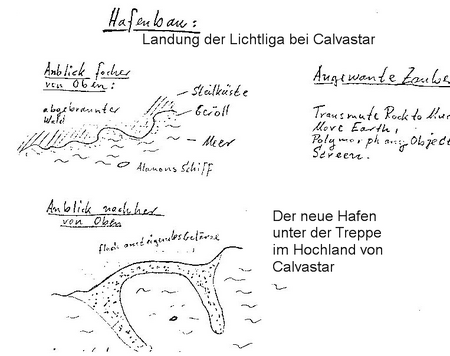 Hafenbau:
Landung der Lichtliga bei Calvastar
Anblick
von Oben:
abgebrannter
Wald
Steilküste
Geröll
Meer
Alamans Schiff
Angewante Zauber
Transmute Rock to Mud
Move Earth,
Polymorph any Object
Screen.
Anblick nachher
von Oben
flach ansteigendes Gelände
Der neue Hafen
unter der Treppe
im Hochland von
Calvastar